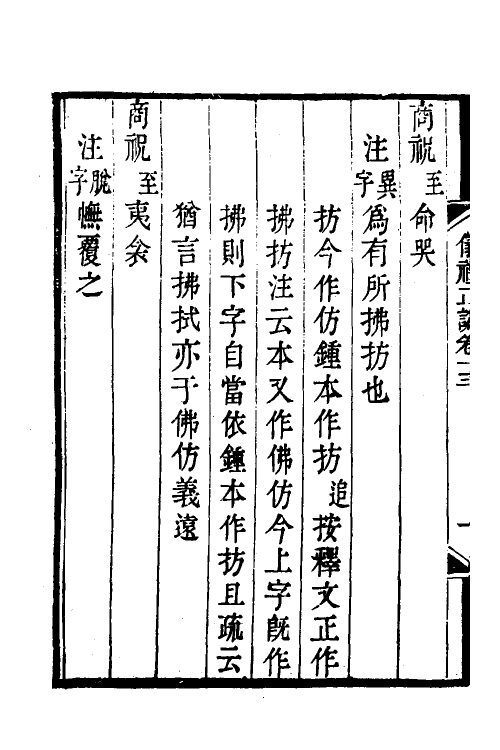 儀禮正譌卷十三
一
商祝至命哭
注異字為有所拂扐也
扐今作仿鍾本作扐追按釋文正作
拂扐注云本又作佛仿今上字既作
拂則下字自當依鍾本作扐且疏云
猶言拂拭亦于佛仿義遠
商祝至夷衾
注脫字幠覆之